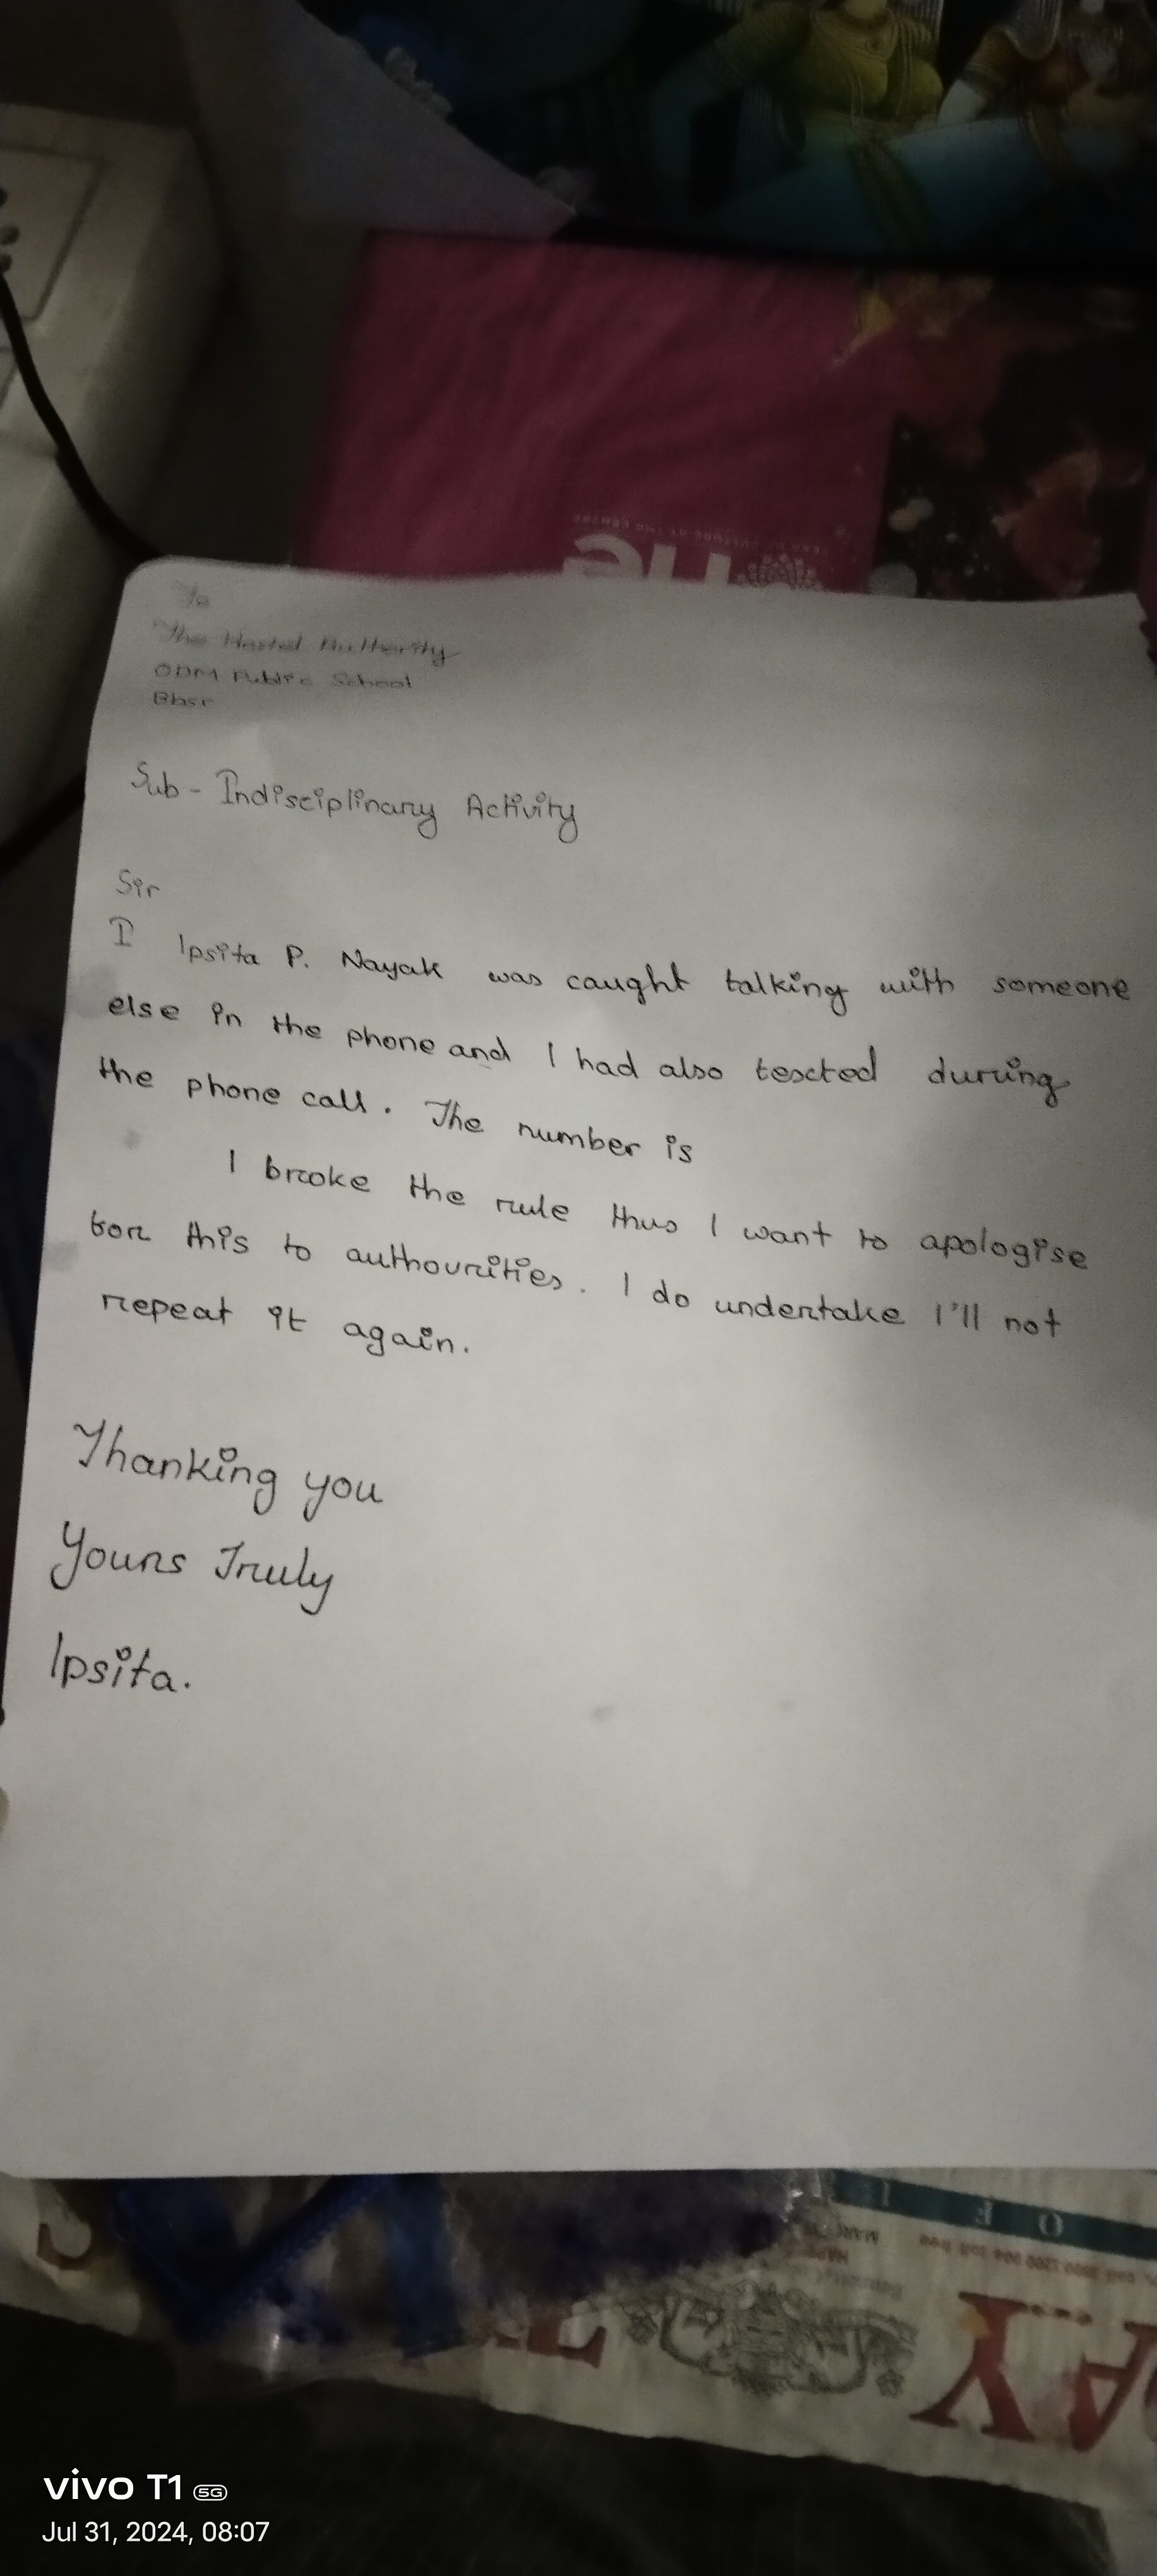 To
The Hostel Authority
ODM Public School
Bbsr
Sub - Indisciplinary Activity
Sir
I Ipsita P. Nayak was caught talking with someone
else in the phone and I had also texted during
the phone call. The number is
I broke the rule thus I want to apologise
for this to authourities. I do undertake I'll not
repeat it again.
Thanking you
Yours Truly
Ipsita.
vivo T1 5G
Jul 31, 2024, 08:07